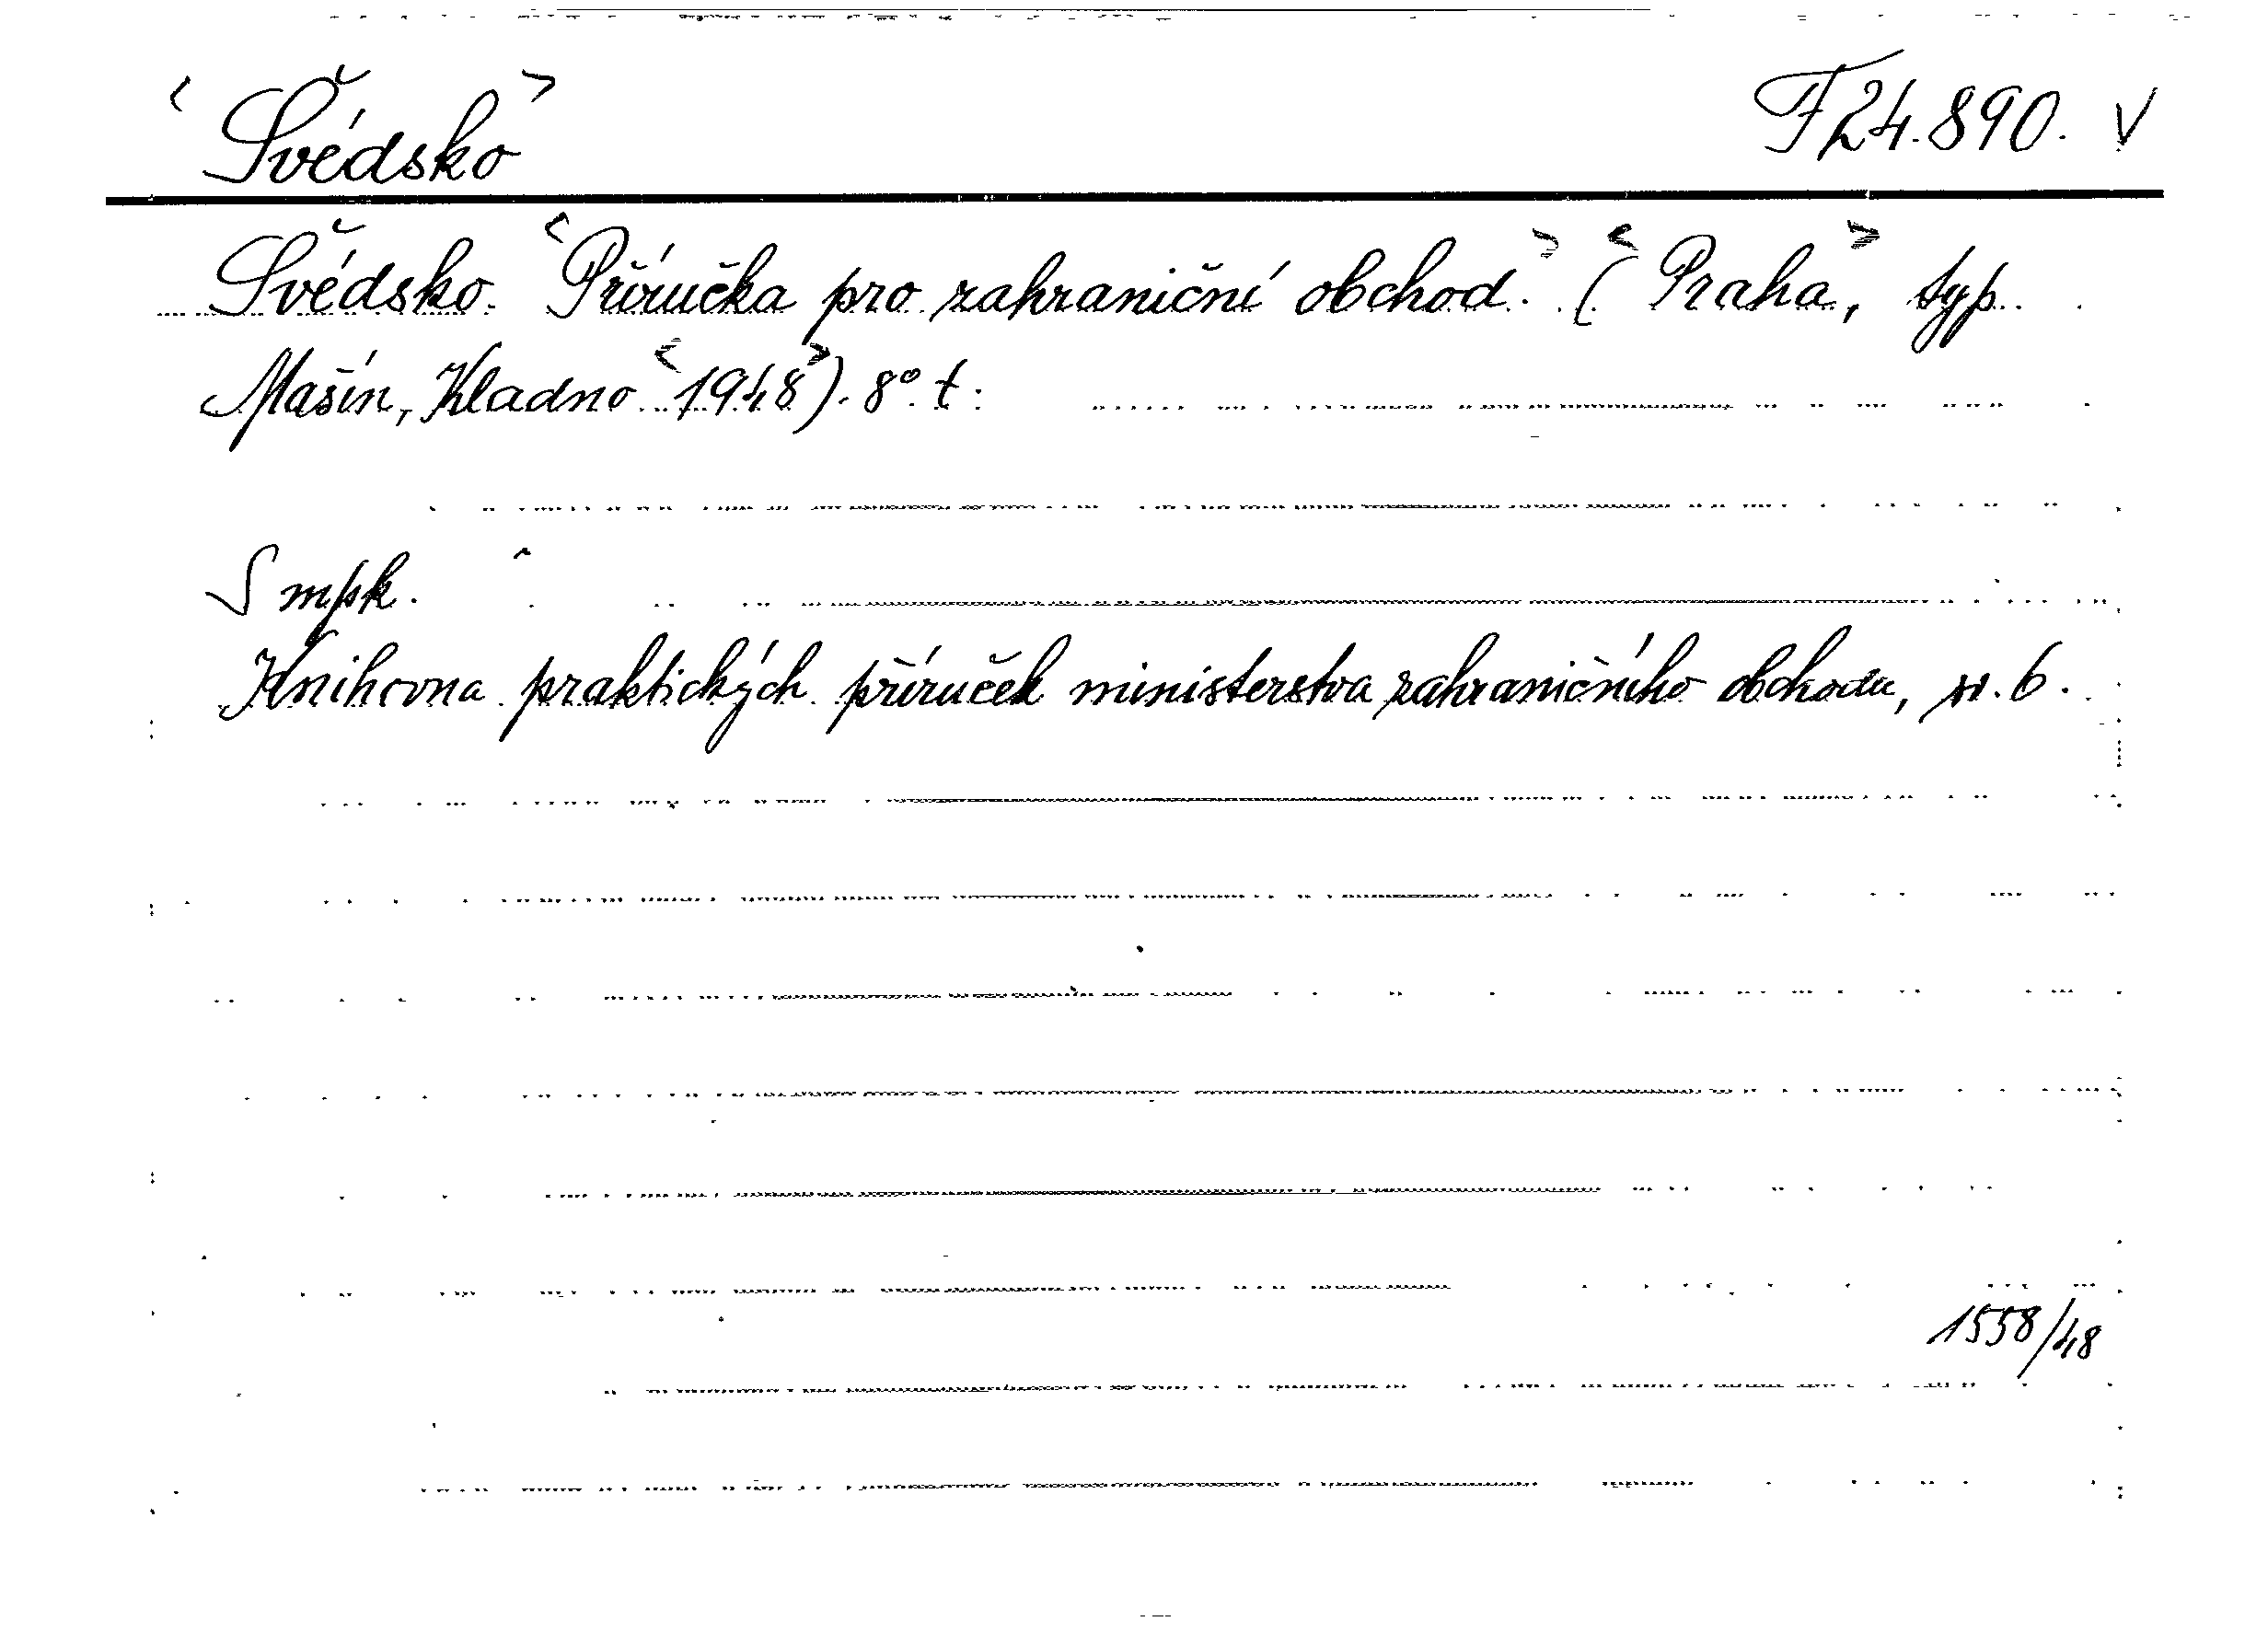 <Švédsko> F 24.890. V
Švédsko. <Příručka pro zahraniční obchod.> (<Praha>, typ.
Mašín, Kladno <1948>). 8° t.
S mpk.
Knihovna praktických příruček ministerstva zahraničního obchodu, sv. 6.
1558/48